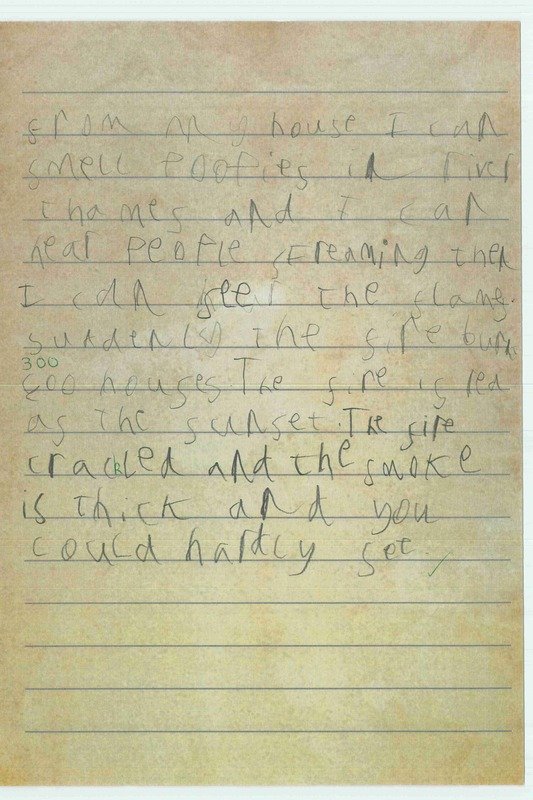 from my house I can
smell poopies in river
thames and I can
hear people screaming then
I can see the
suddenly the fire burn
300
houses. The fire is red
as the sunset. The fire
crackled and the smoke
is thick and you
could hardly see. ✓